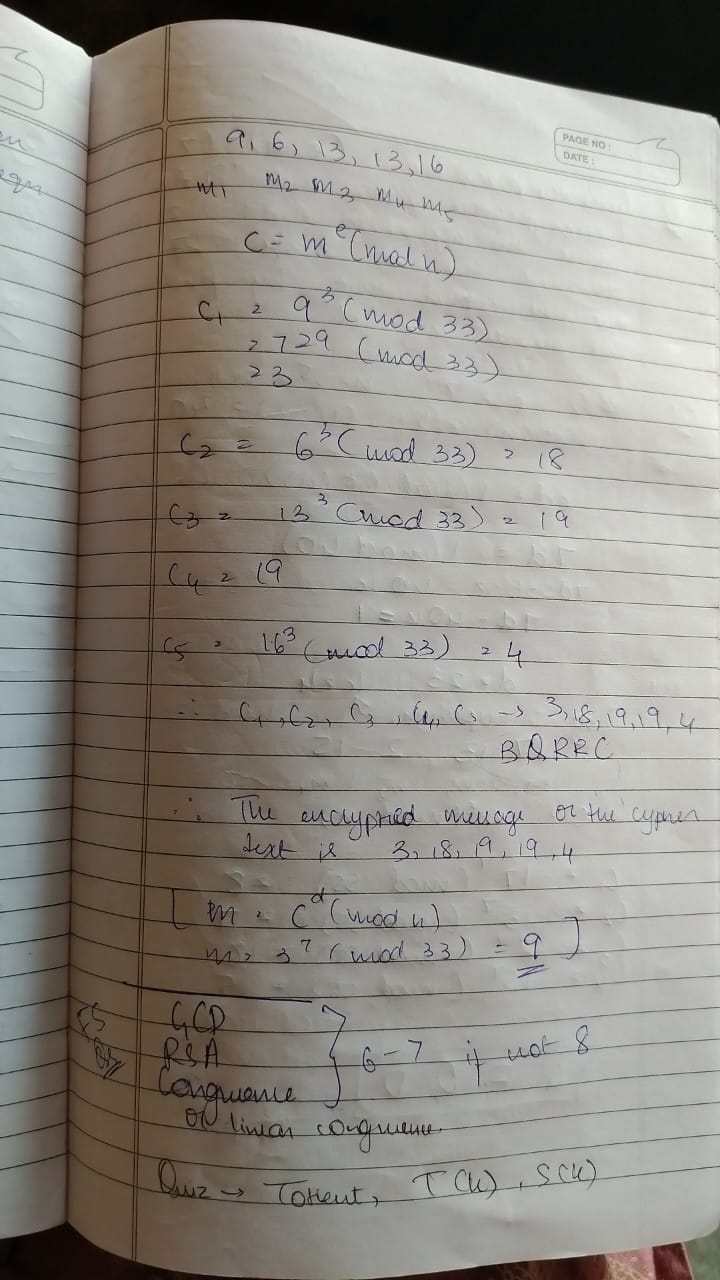 PAGE NO :
DATE :
9, 6, 13, 13, 16
m1 m2 m3 m4 m5
C = m^e (mod n)
C1 = 9^3 (mod 33)
= 729 (mod 33)
= 3
C2 = 6^3 (mod 33) = 18
C3 = 13^3 (mod 33) = 19
C4 = 19
C5 = 16^3 (mod 33) = 4
∴ C1, C2, C3, C4, C5 → 3, 18, 19, 19, 4
BQRRC
∴ The encrypted message or the cypher
text is 3, 18, 19, 19, 4
[ m = C^d (mod n)
m = 3^7 (mod 33) = 9 ]
GCD
RSA
Congruence
or linear congruence
} 6-7 if not 8
Quiz → Totient, T(n), S(n)